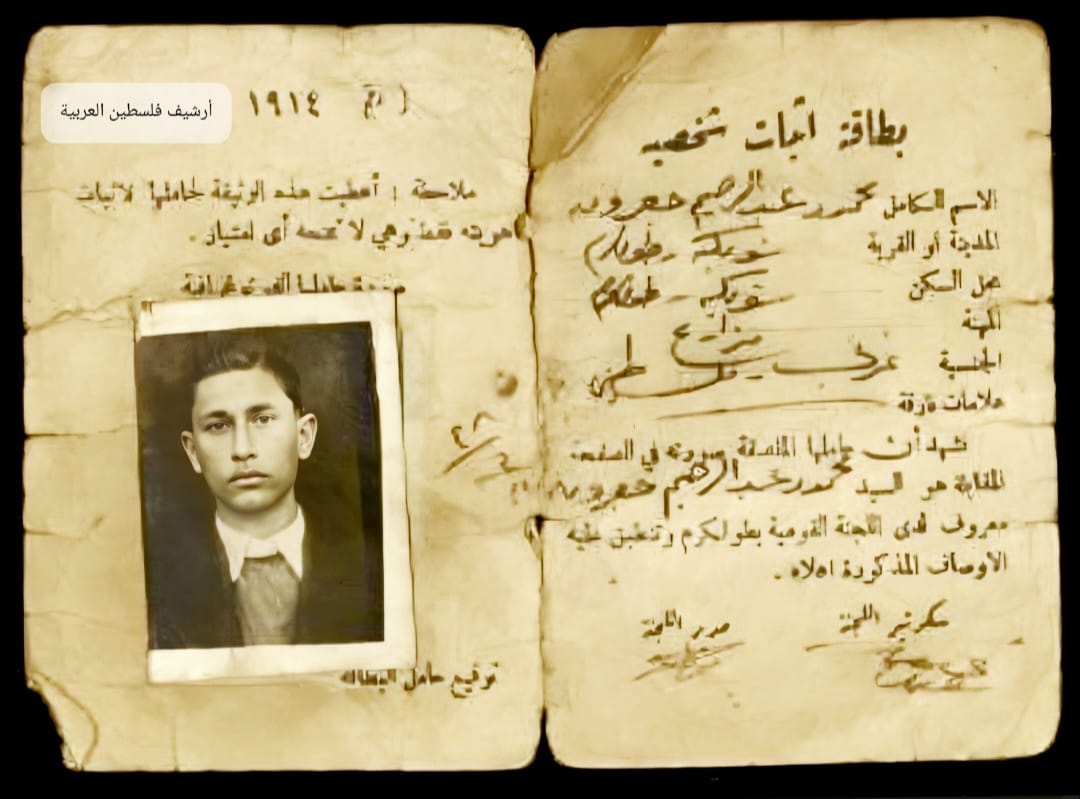 بطاقة أثبات شخصيه
الاسم الكامل محمود عبد الرحيم
المدينة أو القرية شويكه طولكرم
محل السكن شويكه - طولكرم
المهنة مزارع
الجنسية عربي فلسطيني
علامات فارقة
نشهد أن حاملها الملتصقة صورته في الصفحة
المقابلة هو السيد محمود عبد الرحيم
معروف لدى اللجنة القومية بطولكرم وتنطبق عليه
الاوصاف المذكورة اعلاه .
سكرتير اللجنة
أرشيف فلسطين العربية
١٩١٤
ملاحظة : أعطيت هذه الوثيقة لحاملها لاثبات
هويته فقط وهي لا تمنحه أي امتياز .
توقيع حامل البطاقة